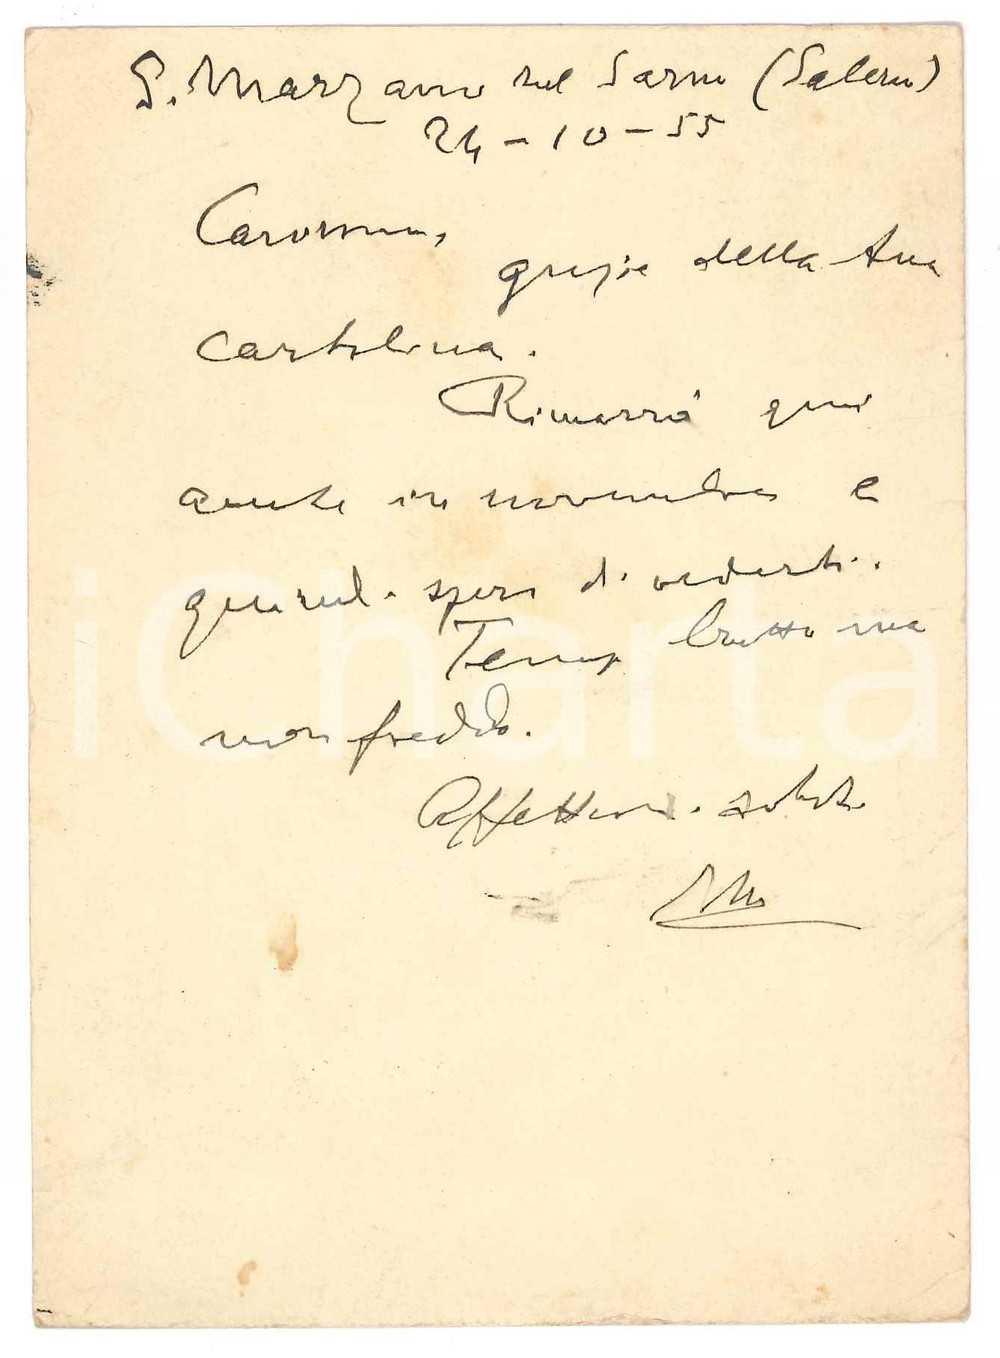 S. Marzano sul Sarno (Salerno)
24-10-55
Carissimo,
grazie della tua
cartolina.
Rimarrò qui
anche in novembre e
quindi spero di vederti.
Tempo brutto ma
non freddo.
Affettuosi saluti
iCharta